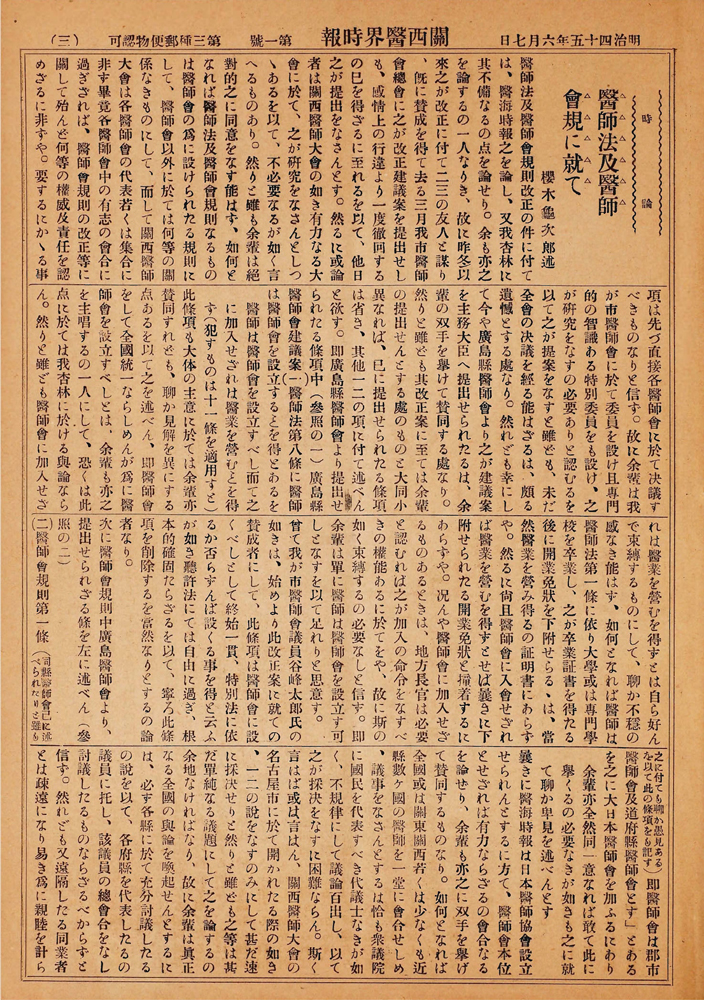 明治四十五年六月七日
關西醫界時報
第一號
第三種郵便物認可
(三)
時論
醫師法及醫師
會規に就て
櫻木龜次郎述
醫師法及醫師會規則改正の件に付て
は、醫海時報之を論し、又我杏林に
其不備なるの点を論せり。余も亦之
を論するの一人なりき、故に昨冬以
來之が改正に付て二三の友人と謀り
、旣に賛成を得て去る三月我市醫師
會總會に之が改正建議案を提出せし
も、感情上の行違より一度徹回する
の已を得ざるに至れるを以て、他日
之が提出をなさんとす。然るに或論
者は關西醫師大會の如き有力なる大
會に於て、之が硏究をなさんとしつ
ゝあるを以て、不必要なるが如く言
へるものあり。然りと雖も余輩は絕
對的之に同意をなす能はす、如何と
なれば醫師法及醫師會規則なるもの
は醫師會の爲に設けられたる規則に
して、醫師會以外に於ては何等の關
係なきものにして、而して關西醫師
大會は各醫師會の代表若くは集合に
非す畢竟各醫師會中の有志の會合に
過ぎされば、醫師會規則の改正等に
關して殆んど何等の權威及責任を認
めざるに非すや。要するにかゝる事
項は先づ直接各醫師會に於て決議す
べきものなりと信す。故に余輩は我
が市醫師會に於て委員を設け且專門
的の智識ある特別委員をも設け、之
が硏究をなすの必要ありと認むるを
以て之が提案をなすと雖ども、未だ
全會の決議を經る能はざるは、頗る
遺憾とする處なり。然れども幸にし
て今や廣島縣醫師會より之が建議案
を主務大臣へ提出せられたるは、余
輩の双手を擧けて賛同する處なり。
然りと雖ども其改正案に至ては余輩
の提出せんとする處のものと大同小
異なれば、已に提出せられたる條項
は省き、其他一二の項に付て述べん
と欲す。即廣島縣醫師會より提出せ
られたる條項中(參照の一)廣島縣
醫師會建議案(一)醫師法第八條に醫師
は醫師會を設立するとを得とあるを
醫師は醫師會を設立すべし而て之
に加入せざれは醫業を營むとを得
す(犯すものは十一條を適用すと)
此條項も大体の主意に於ては余輩亦
賛同すれども、聊か見解を異にする
点あるを以て之を述べん、即醫師會
をして全國統一ならしめんが爲に醫
師會を設立すべしとは、余輩も亦之
を主唱するの一人にして、恐くは此
点に於ては我杏林に於ける輿論なら
ん。然りと雖ども醫師會に加入せざ
れは醫業を營むを得すとは自ら好ん
で束縛するものにして、聊か不穩の
感なき能はす、如何となれば醫師は
醫師法第一條に依り大學或は專門學
校を卒業し、之が卒業証書を得たる
後に開業免狀を下附せらるゝは、當
然醫業を營み得るの証明書にあらす
や。然るに尙且醫師會に入會せざれ
ば醫業を營むを得すとせば曩きに下
附せられたる開業免狀と撞着するに
あらすや。况んや醫師會に加入せざ
るものあるときは、地方長官は必要
と認むれば之が加入の命令をなすべ
きの權能あるに於てをや、故に斯の
如く束縛するの必要なしと信す。即
余輩は單に醫師は醫師會を設立す可
しとなすを以て足れりと思意す。
曾て我が市醫師會議員谷峰太郎氏の
如きは、始めより此改正案に就ての
賛成者にして、此條項は醫師會に設
くべしとして終始一貫、特別法に依
るか否らずんば設くる事を得と云ふ
が如き聽許法にては自由に過ぎ、根
本的確固たらざるを以て、寧ろ此條
項を削除するを當然なりとするの論
者なり。
次に醫師會規則中廣島醫師會より、
提出せられざる條を左に述べん(參
照の二)
(二)醫師會規則第一條(同縣醫師會已に述
べられたりと雖も
之に付ても聊か愚見ある
を以て此の條項をも記す)即醫師會は郡市
醫師會及道府縣醫師會とす」とある
を之に大日本醫師會を加ふるにあり
余輩亦全然同一意なれば敢て此に
擧くるの必要なきが如きも之に就
て聊か卑見を述べんとす
曩きに醫海時報は日本醫師協會設立
せられんとするに方て、醫師會本位
とせざれば有力ならざるの會合なる
を論せり、余輩も亦之に双手を擧げ
て賛同するものなり。如何となれば
全國或は關東關西若くは少なくも近
縣數ヶ國の醫師を一堂に會合せしめ
、議事をなさんとするは恰も衆議院
に國民を代表すべき代議士なきが如
く、不規律にして議論百出し、以て
之が採決をなすに困難ならん。斯く
言はば或は言はん、關西醫師大會の
名古屋市に於て開かれたる際の如き
、一二の說をなすのみにして甚だ速
に採決せりと然りと雖ども之等は甚
だ單純なる議題にして之を論するの
余地なければなり、故に余輩は眞正
なる全國の輿論を喚起せんとするに
は、必す各縣に於て充分討議したる
の說を以て、各府縣を代表したるの
議員に托し、該議員の總會合をなし
討議したるものならざるべからすと
信す。然れども又遠隔したる同業者
とは疎遠になり易き爲に親睦を計ら